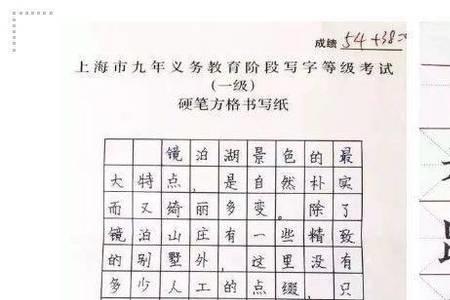 成绩 54+38
上海市九年义务教育阶段写字等级考试
(一级)
硬笔方格书写纸
镜泊湖景色的最
大特点，是自然朴实
而又绮丽多变。除了
镜泊山庄有一些精致
的别墅外，这里没有
多少人工的点缀，只